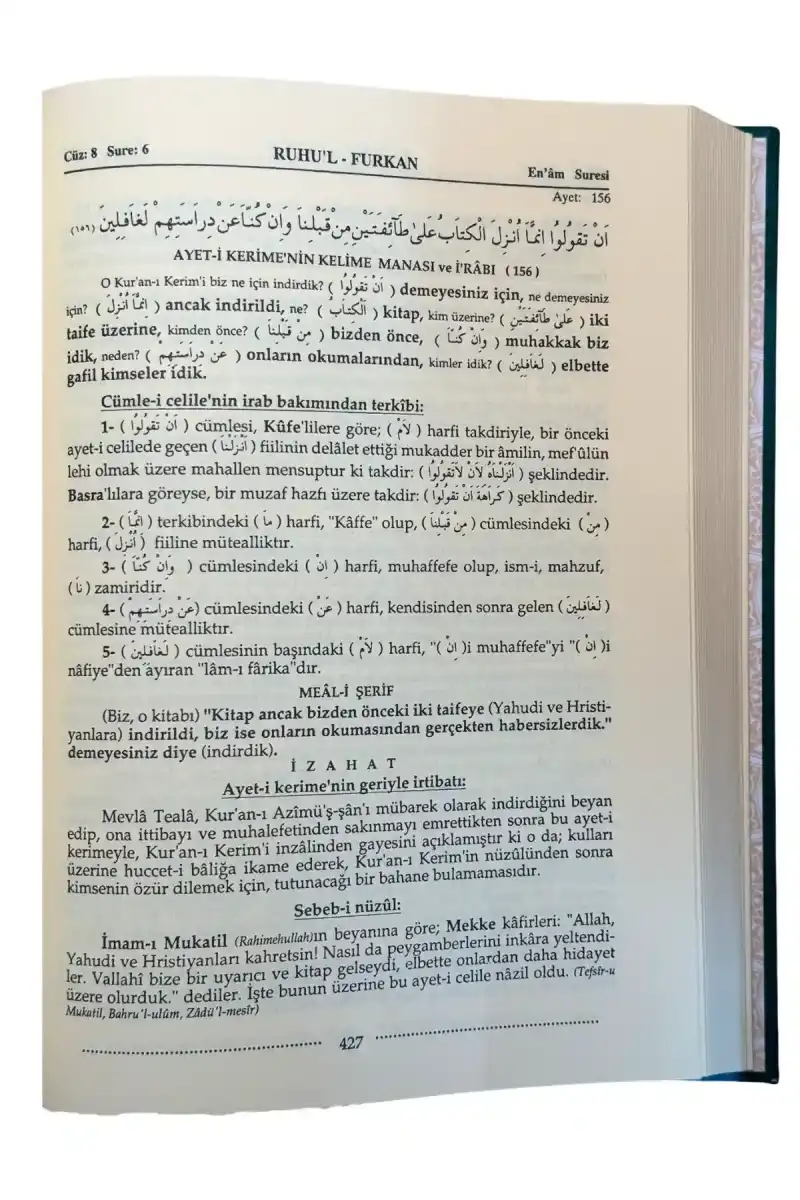 Cüz: 8 Sure: 6
RUHU'L - FURKAN
En'âm Suresi
Ayet: 156
اَنْ تَقُولُوٓا اِنَّمَٓا اُنْزِلَ الْكِتَابُ عَلٰى طَٓائِفَتَيْنِ مِنْ قَبْلِنَا وَاِنْ كُنَّا عَنْ دِرَاسَتِهِمْ لَغَافِل۪ينَ (١٥٦)
AYET-İ KERİME'NİN KELİME MANASI ve İ'RÂBI (156)
O Kur'an-ı Kerim'i biz ne için indirdik? ( اَنْ تَقُولُوٓا ) demeyesiniz için, ne demeyesiniz
için? ( اِنَّمَٓا اُنْزِلَ ) ancak indirildi, ne? ( الْكِتَابُ ) kitap, kim üzerine? ( عَلٰى طَٓائِفَتَيْنِ ) iki
taife üzerine, kimden önce? ( مِنْ قَبْلِنَا ) bizden önce, ( وَاِنْ كُنَّا ) muhakkak biz
idik, neden? ( عَنْ دِرَاسَتِهِمْ ) onların okumalarından, kimler idik? ( لَغَافِل۪ينَ ) elbette
gafil kimseler idik.
Cümle-i celile'nin irab bakımından terkîbi:
1- ( اَنْ تَقُولُوٓا ) cümlesi, Kûfe'lilere göre; ( لَامْ ) harfi takdiriyle, bir önceki
ayet-i celilede geçen ( اَنْزَلْنَا ) fiilinin delâlet ettiği mukadder bir âmilin, mef'ûlün
lehi olmak üzere mahallen mensuptur ki takdir: ( اَنْزَلْنَاهُ لِاَنْ لَاتَقُولُوا ) şeklindedir.
Basra'lılara göreyse, bir muzaf hazfı üzere takdir: ( كَرَاهَةَ اَنْ تَقُولُوا ) şeklindedir.
2- ( اِنَّمَا ) terkibindeki ( مَا ) harfi, "Kâffe" olup, ( مِنْ قَبْلِنَا ) cümlesindeki ( مِنْ )
harfi, ( اُنْزِلَ ) fiiline müteallktir.
3- ( وَاِنْ كُنَّا ) cümlesindeki ( اِنْ ) harfi, muhaffefe olup, ism-i, mahzuf,
( نَا ) zamiridir.
4- ( عَنْ دِرَاسَتِهِمْ ) cümlesindeki ( عَنْ ) harfi, kendisinden sonra gelen ( لَغَافِلِينَ )
cümlesine müteallıktır.
5- ( لَغَافِلِينَ ) cümlesinin başındaki ( لَامْ ) harfi, "( اِنْ )i muhaffefe"yi "( اِنْ )i
nâfiye"den ayıran "lâm-ı fârika"dır.
MEÂL-İ ŞERİF
(Biz, o kitabı) "Kitap ancak bizden önceki iki taifeye (Yahudi ve Hristi-
yanlara) indirildi, biz ise onların okumasından gerçekten habersizlerdik."
demeyesiniz diye (indirdik).
İ Z A H A T
Ayet-i kerime'nin geriyle irtibatı:
Mevlâ Teâlâ, Kur'an-ı Azîmü'ş-şân'ı mübarek olarak indirdiğini beyan
edip, ona ittibayı ve muhalefetinden sakınmayı emrettikten sonra bu ayet-i
kerimeyle, Kur'an-ı Kerim'i inzâlinden gayesini açıklamıştır ki o da; kulları
üzerine huccet-i bâliğa ikame ederek, Kur'an-ı Kerim'in nüzûlünden sonra
kimsenin özür dilemek için, tutunacağı bir bahane bulamamasıdır.
Sebeb-i nüzûl:
İmam-ı Mukatil (Rahimehullah)ın beyanına göre; Mekke kâfirleri: "Allah,
Yahudi ve Hristiyanları kahretsin! Nasıl da peygamberlerini inkâra yeltendi-
ler. Vallahî bize bir uyarıcı ve kitap gelseydi, elbette onlardan daha hidayet
üzere olurduk." dediler. İşte bunun üzerine bu ayet-i celile nâzil oldu. (Tefsîr-u
Mukatil, Bahru'l-ulûm, Zâdü'l-mesîr)
427